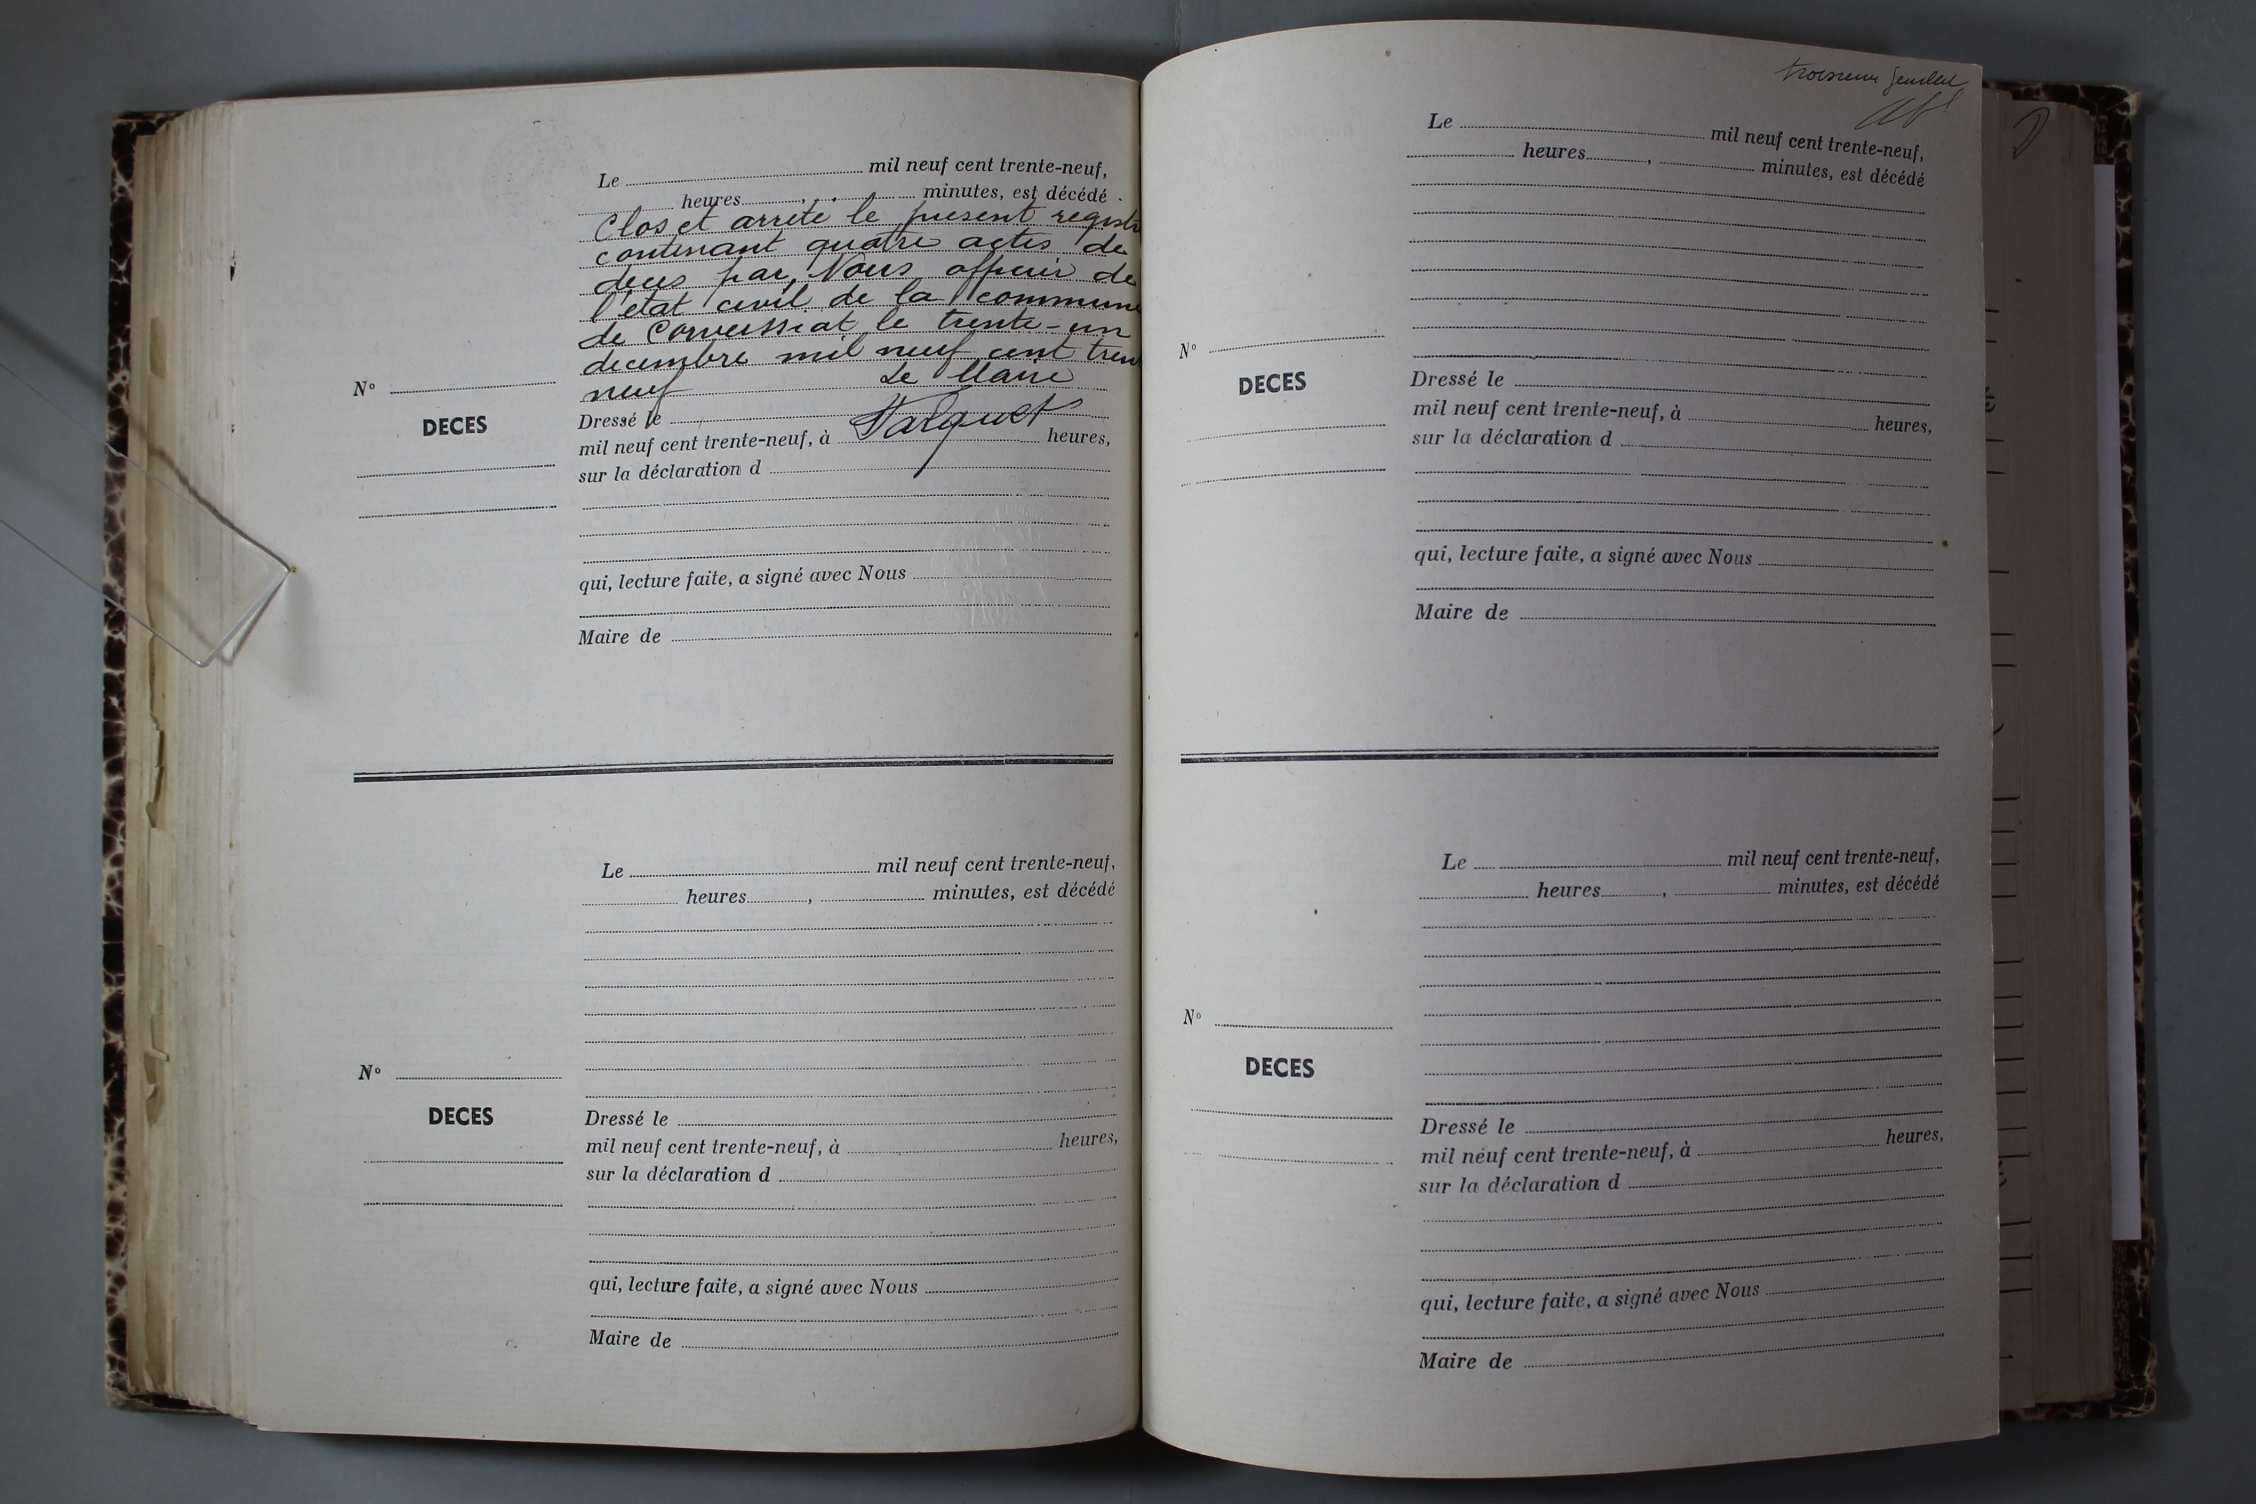 Le mil neuf cent trente-neuf,
heures, minutes, est décédé
Clos et arrêté le présent registre
contenant quatre actes de
décès par Nous officier de
l'état civil de la commune
de Corveissiat le trente-un
decembre mil neuf cent
neuf Le Maire
Nº
DECES
Dressé le
mil neuf cent trente-neuf, à heures,
sur la déclaration d
qui, lecture faite, a signé avec Nous
Maire de
Le mil neuf cent trente-neuf,
heures, minutes, est décédé
Nº
DECES
Dressé le
mil neuf cent trente-neuf, à heures,
sur la déclaration d
qui, lecture faite, a signé avec Nous
Maire de
troisième feuillet
Le mil neuf cent trente-neuf,
heures, minutes, est décédé
Nº
DECES
Dressé le
mil neuf cent trente-neuf, à heures,
sur la déclaration d
qui, lecture faite, a signé avec Nous
Maire de
Le mil neuf cent trente-neuf,
heures, minutes, est décédé
Nº
DECES
Dressé le
mil neuf cent trente-neuf, à heures,
sur la déclaration d
qui, lecture faite, a signé avec Nous
Maire de